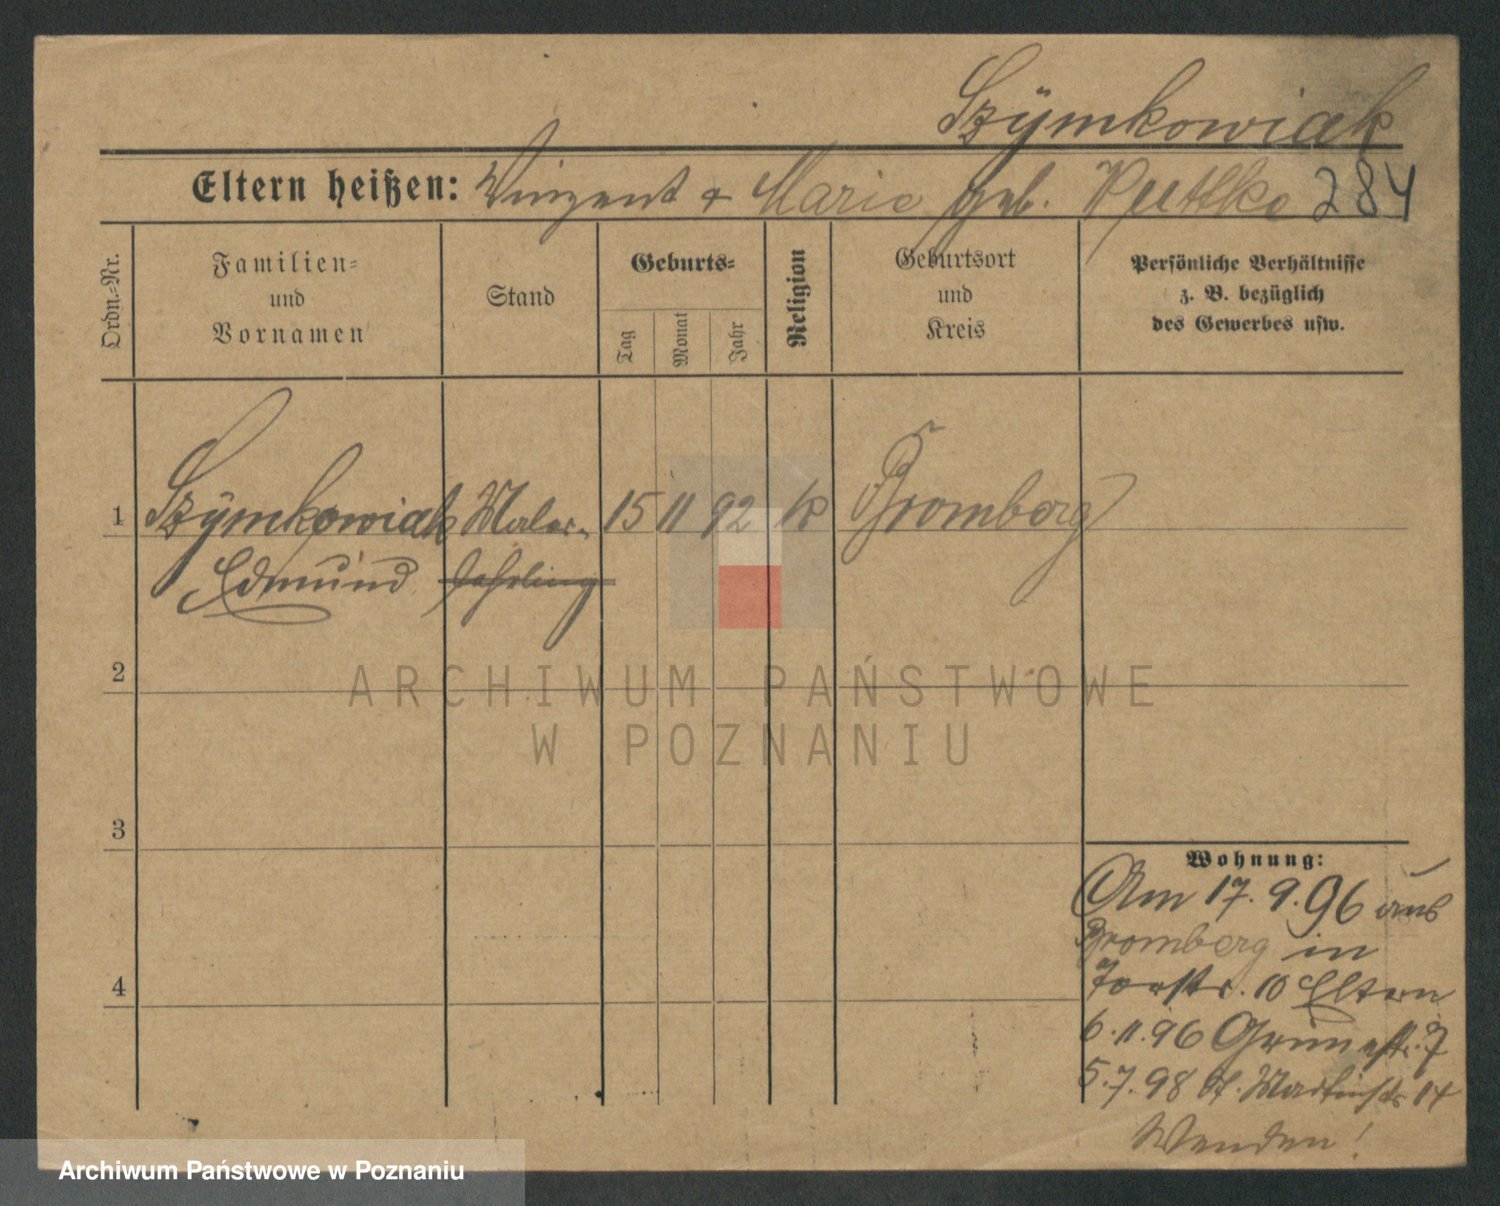 Szÿmkowiak
Eltern heißen: Vinzent + Marie geb. Ruttke 284
Ordn.-Nr.
Familien-
und
Vornamen
Stand
Geburts-
Tag
Monat
Jahr
Religion
Geburtsort
und
Kreis
Persönliche Verhältnisse
z. B. bezüglich
des Gewerbes usw.
1 Szÿmkowiak Maler- 15 11 92 k Bromberg
Edmund lehrling
2
ARCHIWUM PAŃSTWOWE
W POZNANIU
3
Wohnung:
Am 17.9.96 aus
Bromberg in
10 Eltern
4
6.11.96 Grünestr. 7
5.7.98 St. Martinstr 14
Wenden!
Archiwum Państwowe w Poznaniu